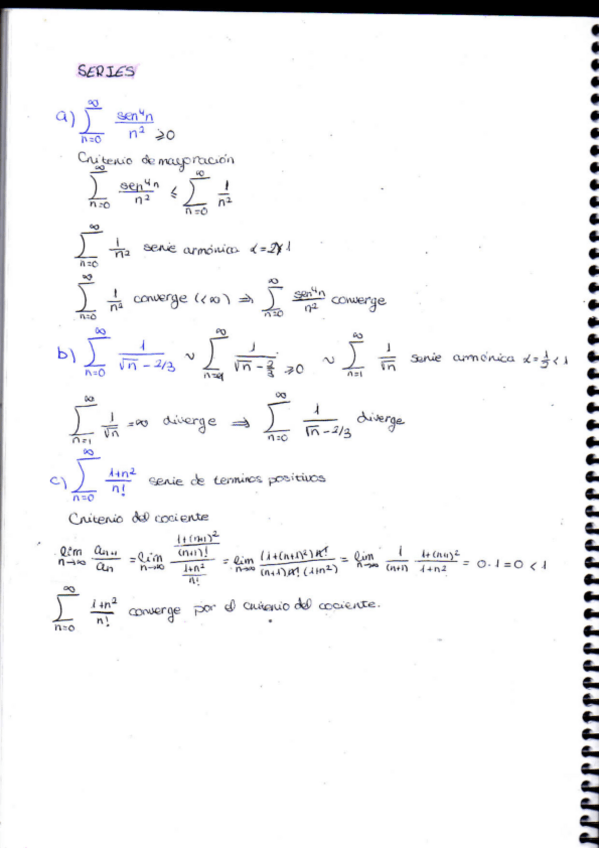 SERIES
a) ∑_{n=0}^{∞} sen⁴n / n² ⩾0
Criterio de mayoración
∑_{n=0}^{∞} sen⁴n / n² ≤ ∑_{n=0}^{∞} 1/n²
∑_{n=0}^{∞} 1/n² serie armónica α=2>1
∑_{n=0}^{∞} 1/n² converge (<∞) ⇒ ∑_{n=0}^{∞} sen⁴n / n² converge
b) ∑_{n=0}^{∞} 1/(√n - 2/3) ~ ∑_{n=1}^{∞} 1/(√n - 2/3) ⩾0 ~ ∑_{n=1}^{∞} 1/√n serie armónica α=1/3<1
∑_{n=1}^{∞} 1/√n =∞ diverge ⇒ ∑_{n=0}^{∞} 1/(√n - 2/3) diverge
c) ∑_{n=0}^{∞} (1+n²)/n! serie de terminos positivos
Criterio del cociente
lim_{n→∞} a_{n+1}/a_n = lim_{n→∞} ((1+(n+1)²)/(n+1)!)/((1+n²)/n!) = lim_{n→∞} ((1+(n+1)²) n!)/((n+1) n! (1+n²)) = lim_{n→∞} 1/(n+1) (1+(n+1)²)/(1+n²) = 0·1=0 <1
∑_{n=0}^{∞} (1+n²)/n! converge por el criterio del cociente.